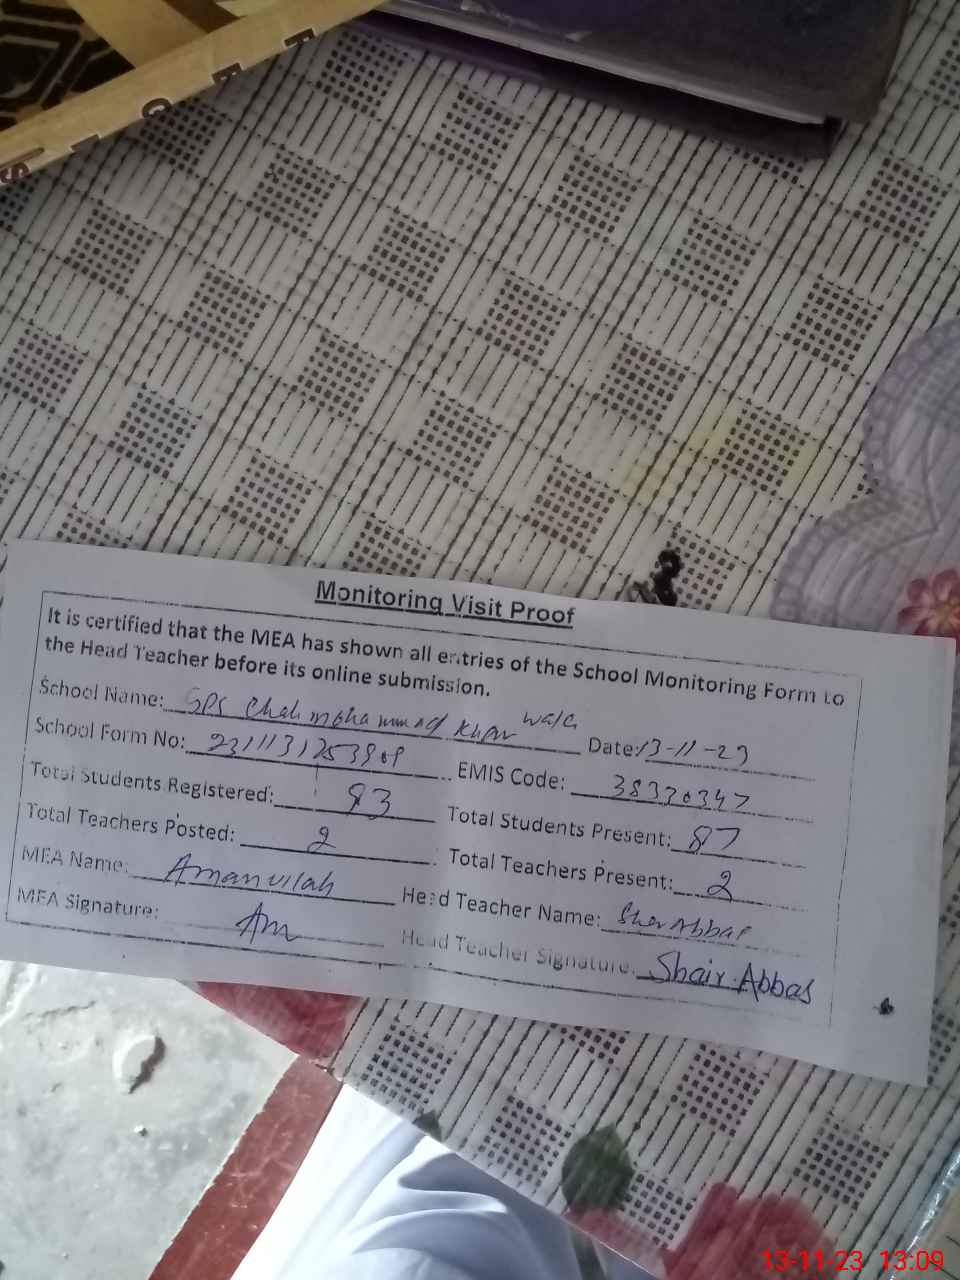 Monitoring Visit Proof
It is certified that the MEA has shown all entries of the School Monitoring Form to
the Head Teacher before its online submission.
School Name: GPS Chah mohammad Khan wala
Date: 13-11-23
School Form No:
EMIS Code: 38330347
Total Students Registered: 93
Total Students Present: 87
Total Teachers Posted: 2
Total Teachers Present: 2
MEA Name: Amanullah
Head Teacher Name: Sher Abbas
MEA Signature: Am
Head Teacher Signature: Shair Abbas
13-11-23 13:09